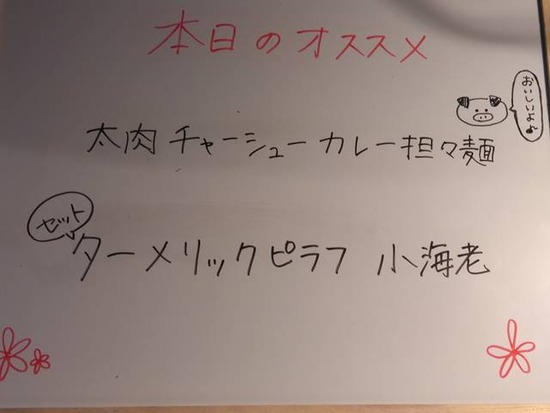 本日のオススメ
おいしいよ♪
太肉チャーシューカレー担々麺
セット
ターメリックピラフ 小海老